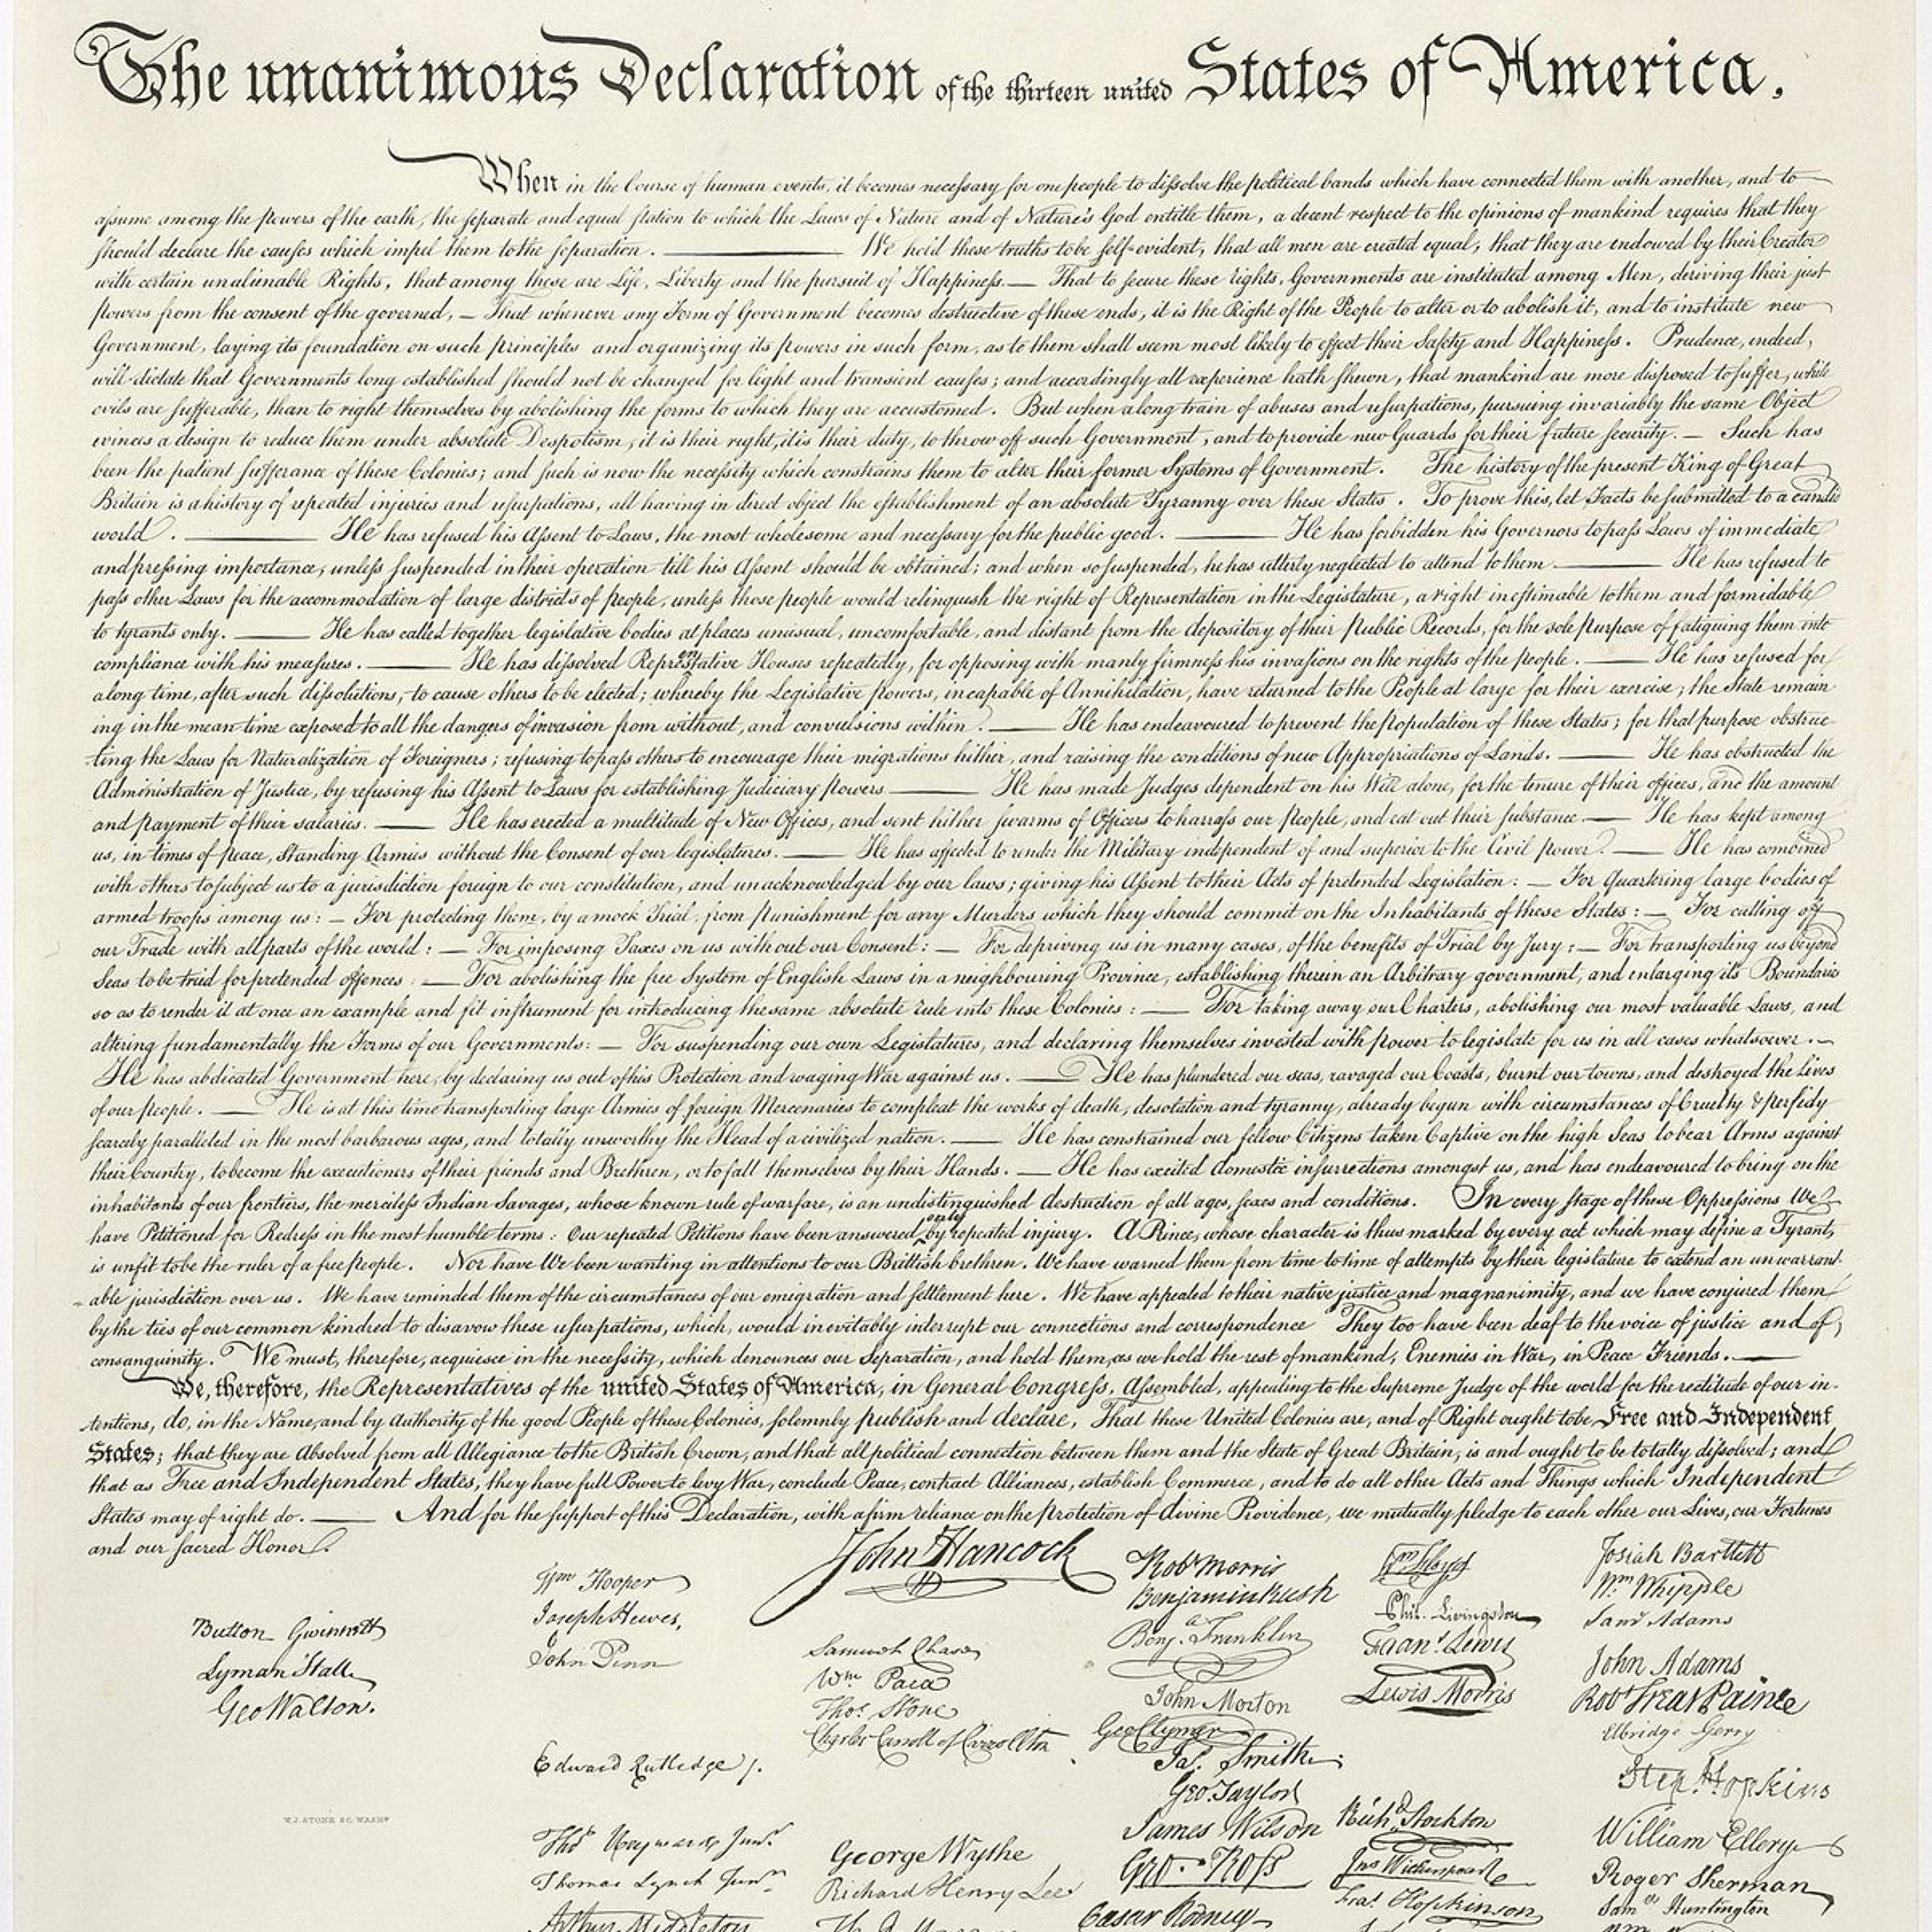 The unanimous Declaration of the thirteen united States of America,
When in the Course of human events, it becomes necessary for one people to dissolve the political bands which have connected them with another, and to
assume among the powers of the earth, the separate and equal station to which the Laws of Nature and of Nature's God entitle them, a decent respect to the opinions of mankind requires that they
should declare the causes which impel them to the separation. ——— We hold these truths to be self-evident, that all men are created equal, that they are endowed by their Creator
with certain unalienable Rights, that among these are Life, Liberty and the pursuit of Happiness.— That to secure these rights, Governments are instituted among Men, deriving their just
powers from the consent of the governed, — That whenever any Form of Government becomes destructive of these ends, it is the Right of the People to alter or to abolish it, and to institute new
Government, laying its foundation on such principles and organizing its powers in such form, as to them shall seem most likely to effect their Safety and Happiness. Prudence, indeed,
will dictate that Governments long established should not be changed for light and transient causes; and accordingly all experience hath shewn, that mankind are more disposed to suffer, while
evils are sufferable, than to right themselves by abolishing the forms to which they are accustomed. But when a long train of abuses and usurpations, pursuing invariably the same Object
evinces a design to reduce them under absolute Despotism, it is their right, it is their duty, to throw off such Government, and to provide new Guards for their future security. — Such has
been the patient sufferance of these Colonies; and such is now the necessity which constrains them to alter their former Systems of Government. The history of the present King of Great
Britain is a history of repeated injuries and usurpations, all having in direct object the establishment of an absolute Tyranny over these States. To prove this, let Facts be submitted to a candid
world. ——— He has refused his Assent to Laws, the most wholesome and necessary for the public good. ——— He has forbidden his Governors to pass Laws of immediate
and pressing importance, unless suspended in their operation till his Assent should be obtained; and when so suspended, he has utterly neglected to attend to them. ——— He has refused to
pass other Laws for the accommodation of large districts of people, unless those people would relinquish the right of Representation in the Legislature, a right inestimable to them and formidable
to tyrants only. ——— He has called together legislative bodies at places unusual, uncomfortable, and distant from the depository of their Public Records, for the sole purpose of fatiguing them into
compliance with his measures. ——— He has dissolved Representative Houses repeatedly, for opposing with manly firmness his invasions on the rights of the people. ——— He has refused for
a long time, after such dissolutions, to cause others to be elected; whereby the Legislative powers, incapable of Annihilation, have returned to the People at large for their exercise; the State remain-
ing in the mean time exposed to all the dangers of invasion from without, and convulsions within. ——— He has endeavoured to prevent the population of these States; for that purpose obstruc-
ting the Laws for Naturalization of Foreigners; refusing to pass others to encourage their migrations hither, and raising the conditions of new Appropriations of Lands. ——— He has obstructed the
Administration of Justice, by refusing his Assent to Laws for establishing Judiciary powers ——— He has made Judges dependent on his Will alone, for the tenure of their offices, and the amount
and payment of their salaries. ——— He has erected a multitude of New Offices, and sent hither swarms of Officers to harrass our people, and eat out their substance.— He has kept among
us, in times of peace, Standing Armies without the Consent of our legislatures. — He has affected to render the Military independent of and superior to the Civil power. — He has combined
with others to subject us to a jurisdiction foreign to our constitution, and unacknowledged by our laws; giving his Assent to their Acts of pretended Legislation: — For Quartering large bodies of
armed troops among us: — For protecting them, by a mock Trial, from punishment for any Murders which they should commit on the Inhabitants of these States: — For cutting off
our Trade with all parts of the world: — For imposing Taxes on us without our Consent: — For depriving us in many cases, of the benefits of Trial by Jury: — For transporting us beyond
Seas to be tried for pretended offences: — For abolishing the free System of English Laws in a neighbouring Province, establishing therein an Arbitrary government, and enlarging its Boundaries
so as to render it at once an example and fit instrument for introducing the same absolute rule into these Colonies: — For taking away our Charters, abolishing our most valuable Laws, and
altering fundamentally the Forms of our Governments: — For suspending our own Legislatures, and declaring themselves invested with power to legislate for us in all cases whatsoever. —
He has abdicated Government here, by declaring us out of his Protection and waging War against us. — He has plundered our seas, ravaged our Coasts, burnt our towns, and destroyed the Lives
of our people. — He is at this time transporting large Armies of foreign Mercenaries to compleat the works of death, desolation and tyranny, already begun with circumstances of Cruelty & perfidy
scarcely paralleled in the most barbarous ages, and totally unworthy the Head of a civilized nation. — He has constrained our fellow Citizens taken Captive on the high Seas to bear Arms against
their Country, to become the executioners of their friends and Brethren, or to fall themselves by their Hands. — He has excited domestic insurrections amongst us, and has endeavoured to bring on the
inhabitants of our frontiers, the merciless Indian Savages, whose known rule of warfare, is an undistinguished destruction of all ages, sexes and conditions. In every stage of these Oppressions We
have Petitioned for Redress in the most humble terms: Our repeated Petitions have been answered only by repeated injury. A Prince, whose character is thus marked by every act which may define a Tyrant,
is unfit to be the ruler of a free people. Nor have We been wanting in attentions to our Brittish brethren. We have warned them from time to time of attempts by their legislature to extend an unwarrant-
able jurisdiction over us. We have reminded them of the circumstances of our emigration and settlement here. We have appealed to their native justice and magnanimity, and we have conjured them
by the ties of our common kindred to disavow these usurpations, which, would inevitably interrupt our connections and correspondence They too have been deaf to the voice of justice and of
consanguinity. We must, therefore, acquiesce in the necessity, which denounces our Separation, and hold them, as we hold the rest of mankind, Enemies in War, in Peace Friends. —
We, therefore, the Representatives of the united States of America, in General Congress, Assembled, appealing to the Supreme Judge of the world for the rectitude of our in-
tentions, do, in the Name, and by Authority of the good People of these Colonies, solemnly publish and declare, That these United Colonies are, and of Right ought to be Free and Independent
States; that they are Absolved from all Allegiance to the British Crown, and that all political connection between them and the State of Great Britain, is and ought to be totally dissolved; and
that as Free and Independent States, they have full Power to levy War, conclude Peace, contract Alliances, establish Commerce, and to do all other Acts and Things which Independent
States may of right do. — And for the support of this Declaration, with a firm reliance on the protection of divine Providence, we mutually pledge to each other our Lives, our Fortunes
and our sacred Honor.
Button Gwinnett
Lyman Hall
Geo Walton.
W.J. STONE SC. WASHN
Wm Hooper
Joseph Hewes,
John Penn
Edward Rutledge /.
Thos Heyward Junr.
Thomas Lynch Junr.
Arthur Middleton
John Hancock
Samuel Chase
Wm Paca
Thos. Stone
Charles Carroll of Carrollton
George Wythe
Richard Henry Lee
Robt Morris
Benjamin Rush
Benja. Franklin
John Morton
Geo Clymer
Jas. Smith
Geo. Taylor
James Wilson
Geo. Ross
Caesar Rodney
Wm Floyd
Phil. Livingston
Frans. Lewis
Lewis Morris
Richd. Stockton
Jno Witherspoon
Fras. Hopkinson
Josiah Bartlett
Wm Whipple
Saml Adams
John Adams
Robt Treat Paine
Elbridge Gerry
Step. Hopkins
William Ellery
Roger Sherman
Saml Huntington